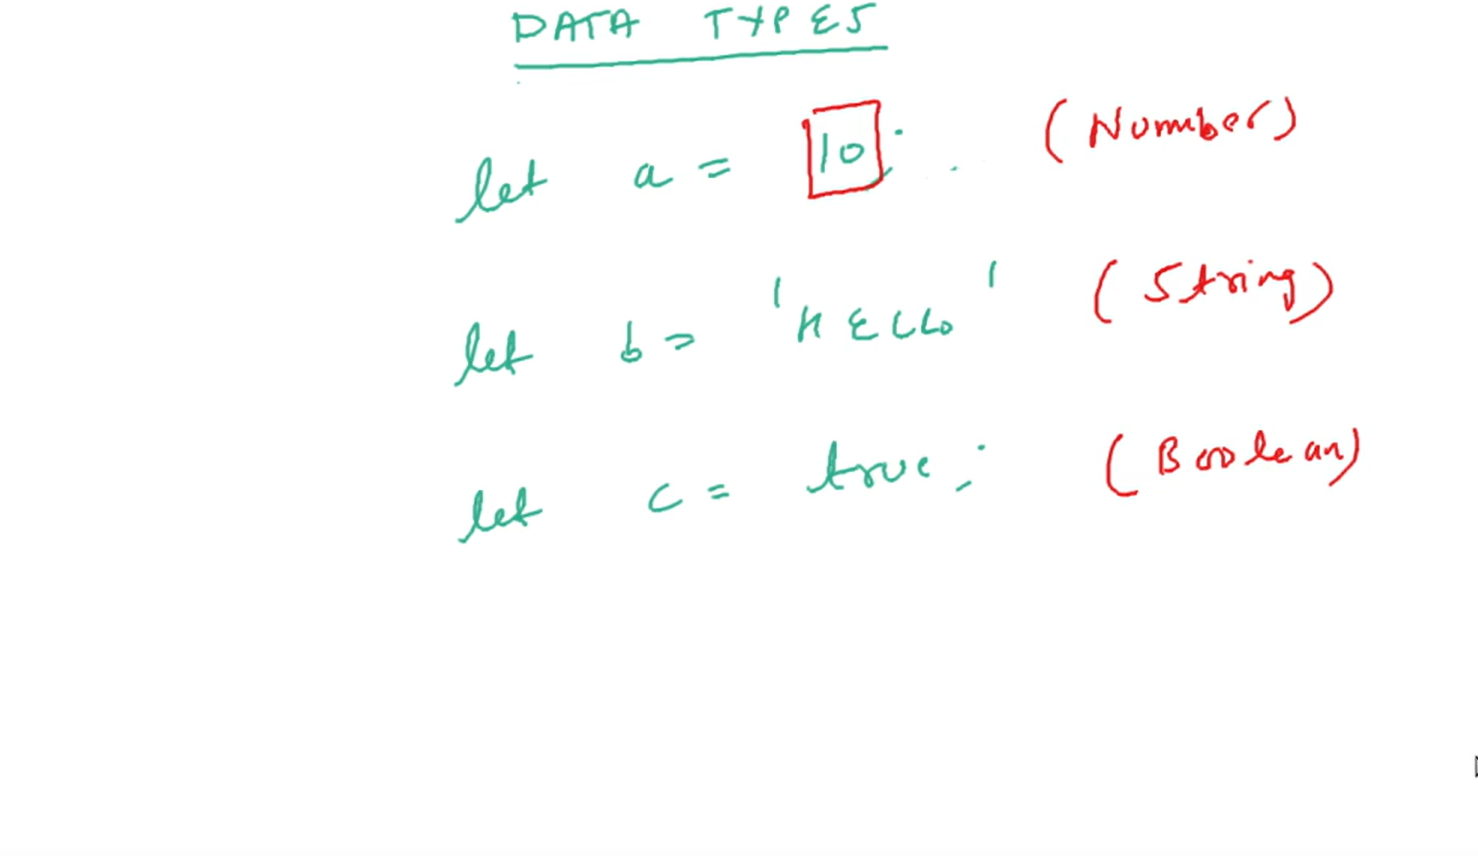 DATA TYPES
let a = 10; (Number)
let b = 'HELLO' (String)
let c = true; (Boolean)